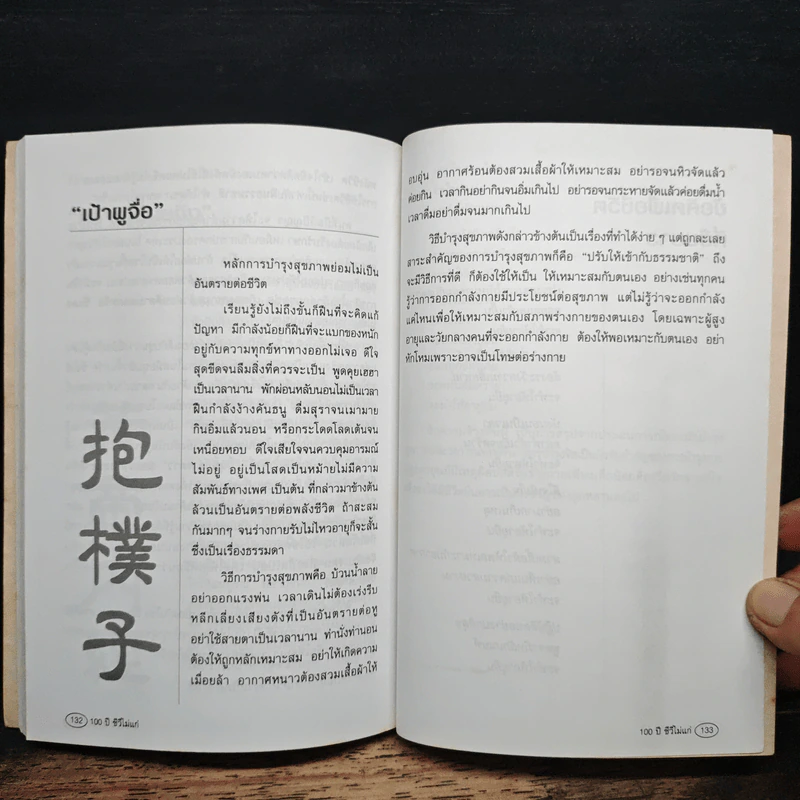 "เป้าผูจื่อ"
หลักการบำรุงสุขภาพย่อมไม่เป็น
อันตรายต่อชีวิต
เรียนรู้ยังไม่ถึงขั้นก็ฝืนที่จะคิดแก้
ปัญหา มีกำลังน้อยก็ฝืนที่จะแบกของหนัก
อยู่กับความทุกข์หาทางออกไม่เจอ ดีใจ
สุดขีดจนลืมสิ่งที่ควรจะเป็น พูดคุยเฮฮา
เป็นเวลานาน พักผ่อนหลับนอนไม่เป็นเวลา
ฝืนกำลังง้างคันธนู ดื่มสุราจนเมามาย
กินอิ่มแล้วนอน หรือกระโดดโลดเต้นจน
เหนื่อยหอบ ดีใจเสียใจจนควบคุมอารมณ์
ไม่อยู่ อยู่เป็นโสดเป็นหม้ายไม่มีความ
สัมพันธ์ทางเพศ เป็นต้น ที่กล่าวมาข้างต้น
ล้วนเป็นอันตรายต่อพลังชีวิต ถ้าสะสม
กันมากๆ จนร่างกายรับไม่ไหวอายุก็จะสั้น
ซึ่งเป็นเรื่องธรรมดา
วิธีการบำรุงสุขภาพคือ บ้วนน้ำลาย
อย่าออกแรงพ่น เวลาเดินไม่ต้องเร่งรีบ
หลีกเลี่ยงเสียงดังที่เป็นอันตรายต่อหู
อย่าใช้สายตาเป็นเวลานาน ท่านั่งท่านอน
ต้องให้ถูกหลักเหมาะสม อย่าให้เกิดความ
เมื่อยล้า อากาศหนาวต้องสวมเสื้อผ้าให้
抱
樸
子
132 100 ปี ชีวีไม่แก่
อบอุ่น อากาศร้อนต้องสวมเสื้อผ้าให้เหมาะสม อย่ารอจนหิวจัดแล้ว
ค่อยกิน เวลากินอย่ากินจนอิ่มเกินไป อย่ารอจนกระหายจัดแล้วค่อยดื่มน้ำ
เวลาดื่มอย่าดื่มจนมากเกินไป
วิธีบำรุงสุขภาพดังกล่าวข้างต้นเป็นเรื่องที่ทำได้ง่าย ๆ แต่ถูกละเลย
สาระสำคัญของการบำรุงสุขภาพก็คือ "ปรับให้เข้ากับธรรมชาติ" ถึง
จะมีวิธีการที่ดี ก็ต้องใช้ให้เป็น ให้เหมาะสมกับตนเอง อย่างเช่นทุกคน
รู้ว่าการออกกำลังกายมีประโยชน์ต่อสุขภาพ แต่ไม่รู้ว่าจะออกกำลัง
แค่ไหนเพื่อให้เหมาะสมกับสภาพร่างกายของตนเอง โดยเฉพาะผู้สูง
อายุและวัยกลางคนที่จะออกกำลังกาย ต้องให้พอเหมาะกับตนเอง อย่า
หักโหมเพราะอาจเป็นโทษต่อร่างกาย
100 ปี ชีวีไม่แก่ 133